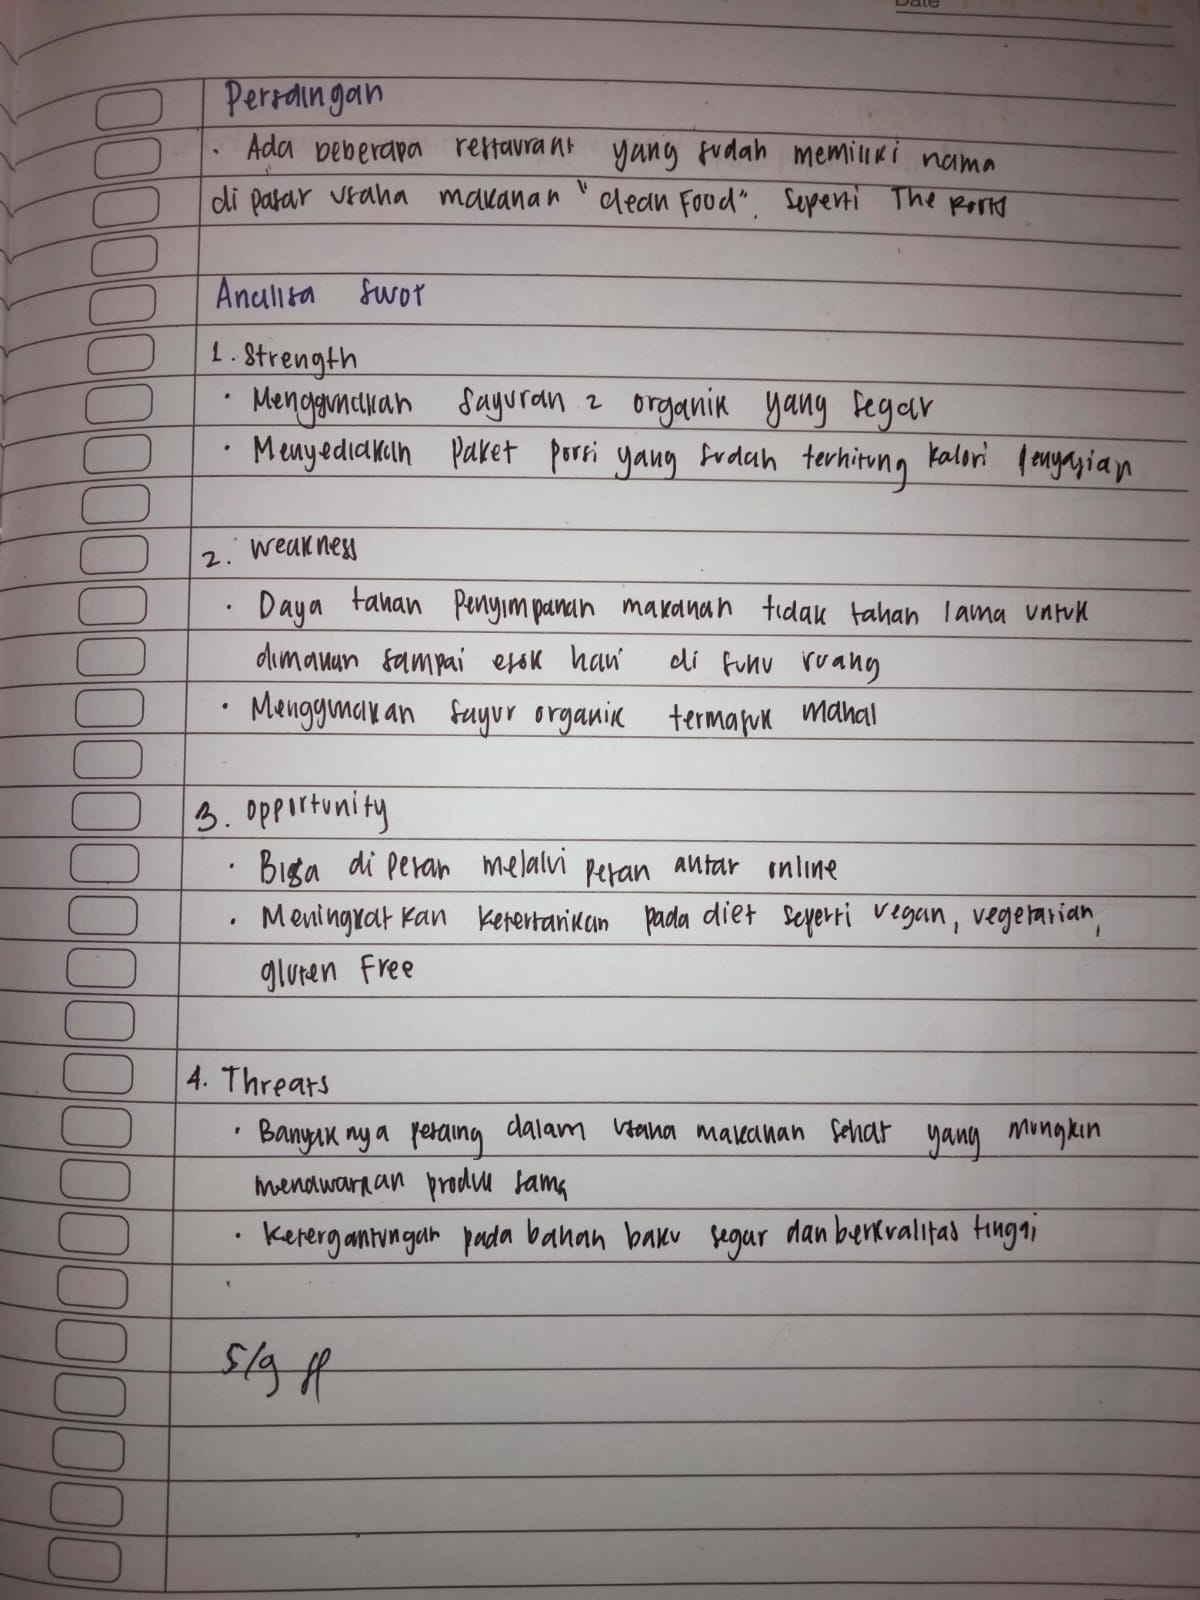 Date
Persaingan
• Ada beberapa restaurant yang sudah memiliki nama
di pasar usaha makanan "clean Food". Seperti The
Analisa Swot
1. Strength
• Menggunakan Sayuran 2 organik yang segar
• Menyediakan paket porsi yang sudah terhitung kalori penyajian
2. Weakness
• Daya tahan Penyimpanan makanan tidak tahan lama untuk
dimakan sampai esok hari di suhu ruang
• Menggunakan sayur organik termasuk mahal
3. Opportunity
• Bisa di pesan melalui pesan antar online
• Meningkat kan ketertarikan pada diet seperti vegan, vegetarian,
gluten Free
4. Threats
• Banyak nya pesaing dalam usaha makanan sehat yang mungkin
menawarkan produk sama
• Ketergantungan pada bahan baku segar dan berkualitas tinggi
5/9